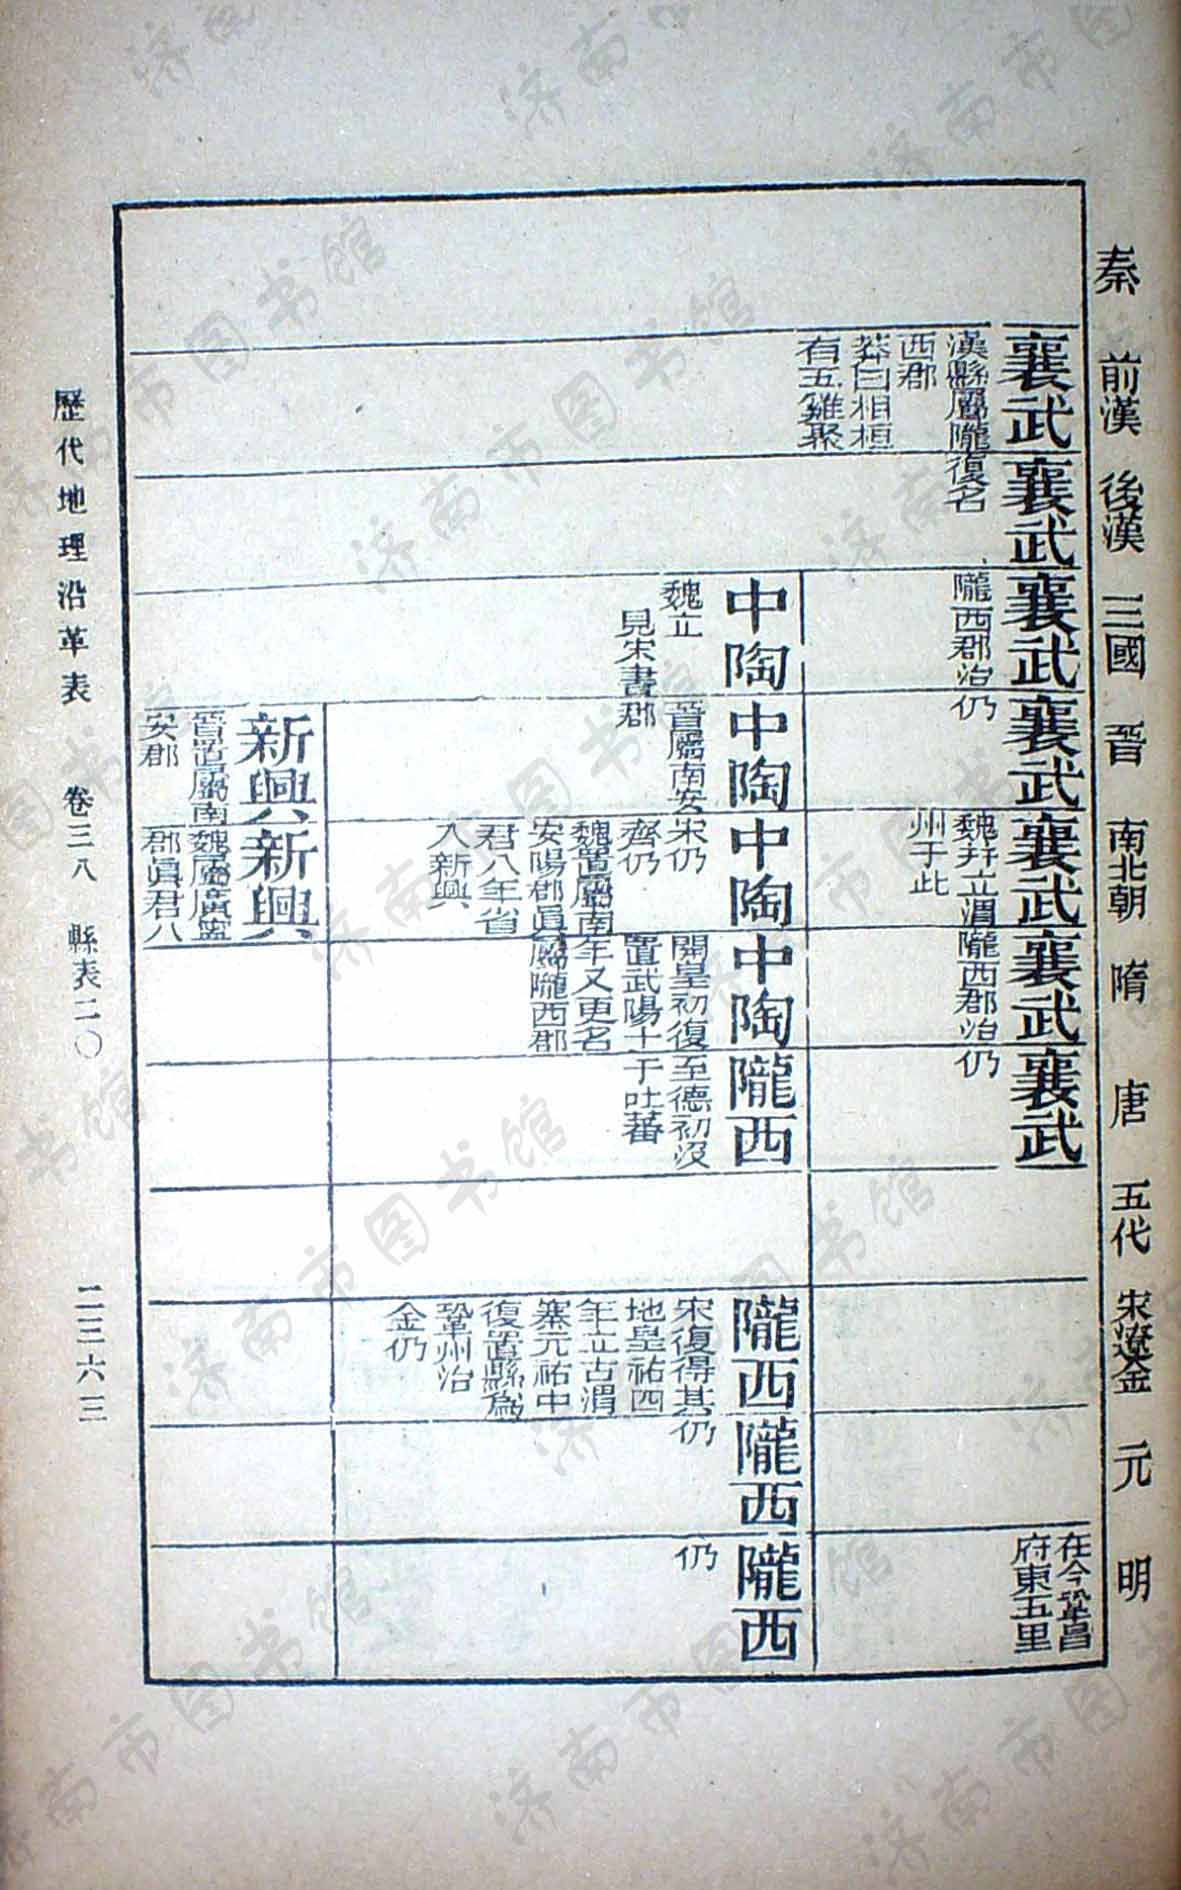 秦
前漢
後漢
三國
晉
南北朝
隋
唐
五代
宋遼金
元
明
襄武
漢縣屬隴
西郡
莽曰相桓
有五雞聚
襄武
復名
襄武
隴西郡治
襄武
仍
襄武
魏幷立渭
州于此
襄武
隴西郡治
襄武
仍
在今鞏昌
府東五里
中陶
魏立
見宋書
中陶
晉屬南安
郡
中陶
宋仍
齊仍
魏置屬南
安陽郡眞
君八年省
入新興
中陶
開皇初復
置武陽十
年又更名
屬隴西郡
隴西
至德初沒
于吐蕃
隴西
宋復得其
地皇祐四
年立古渭
寨元祐中
復置縣爲
鞏州治
金仍
隴西
仍
隴西
仍
新興
晉置屬南
安郡
新興
魏屬廣寧
郡眞君八
歷代地理沿革表 卷三八 縣表二〇 二三六三
济南市图书馆